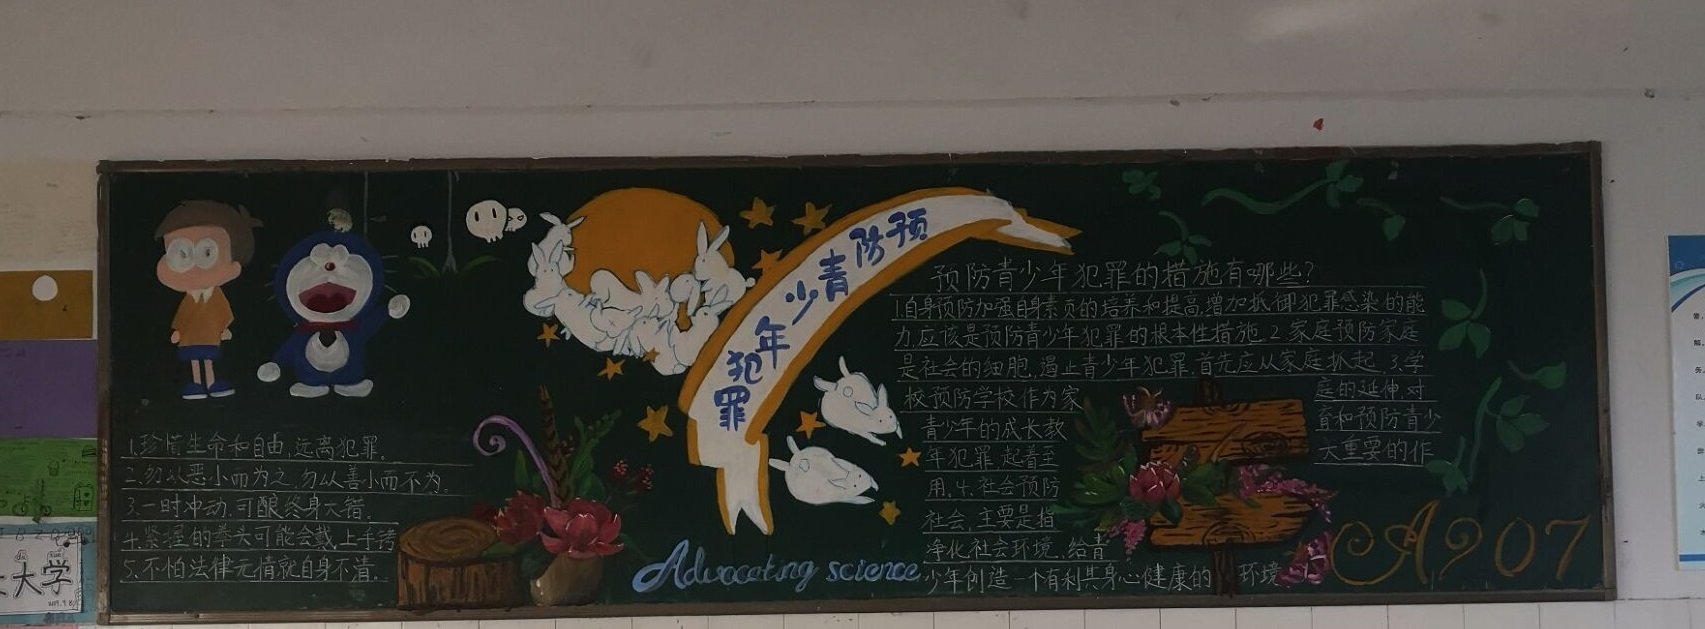 预防青少年犯罪
1.珍惜生命和自由,远离犯罪。
2.勿以恶小而为之,勿以善小而不为。
3.一时冲动,可酿终身大错。
4.紧握的拳头可能会戴上手铐
5.不怕法律无情就自身不清。
Advocating science
预防青少年犯罪的措施有哪些?
1.自身预防加强自身素质的培养和提高,增加抵御犯罪感染的能
力,应该是预防青少年犯罪的根本性措施.2.家庭预防家庭
是社会的细胞,遏止青少年犯罪,首先应从家庭抓起,3.学
校预防学校作为家 庭的延伸,对
青少年的成长教 育和预防青少
年犯罪,起着至 大重要的作
用,4.社会预防
社会,主要是指
净化社会环境,给青
少年创造一个有利其身心健康的 环境
A907
大学